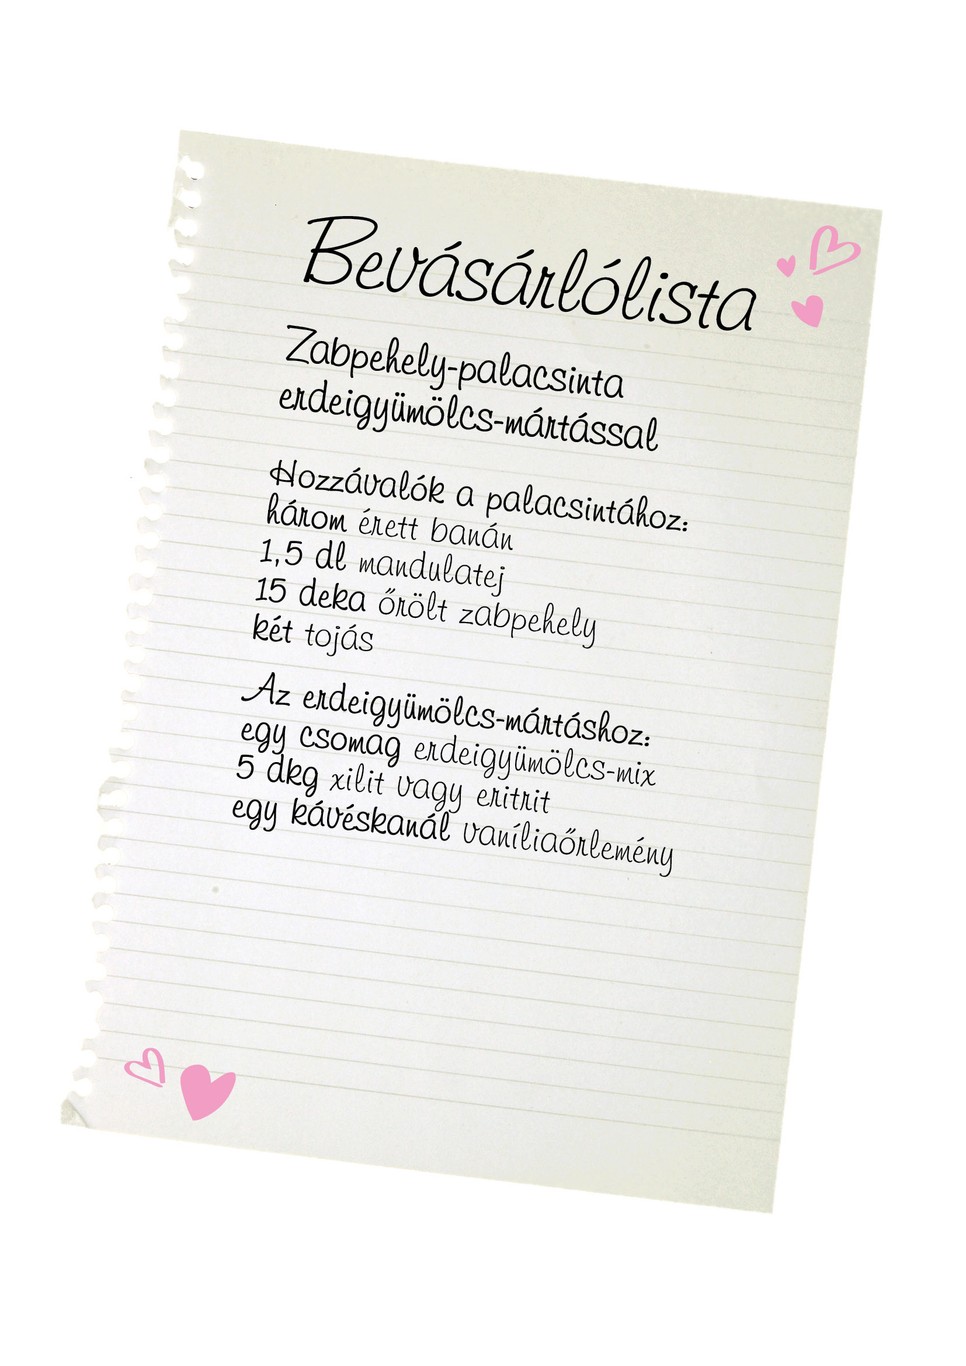 Bevásárlólista
Zabpehely-palacsinta
erdeigyümölcs-mártással
Hozzávalók a palacsintához:
három érett banán
1,5 dl mandulatej
15 deka őrölt zabpehely
két tojás
Az erdeigyümölcs-mártáshoz:
egy csomag erdeigyümölcs-mix
5 dkg xilit vagy eritrit
egy kávéskanál vaníliaőrlemény